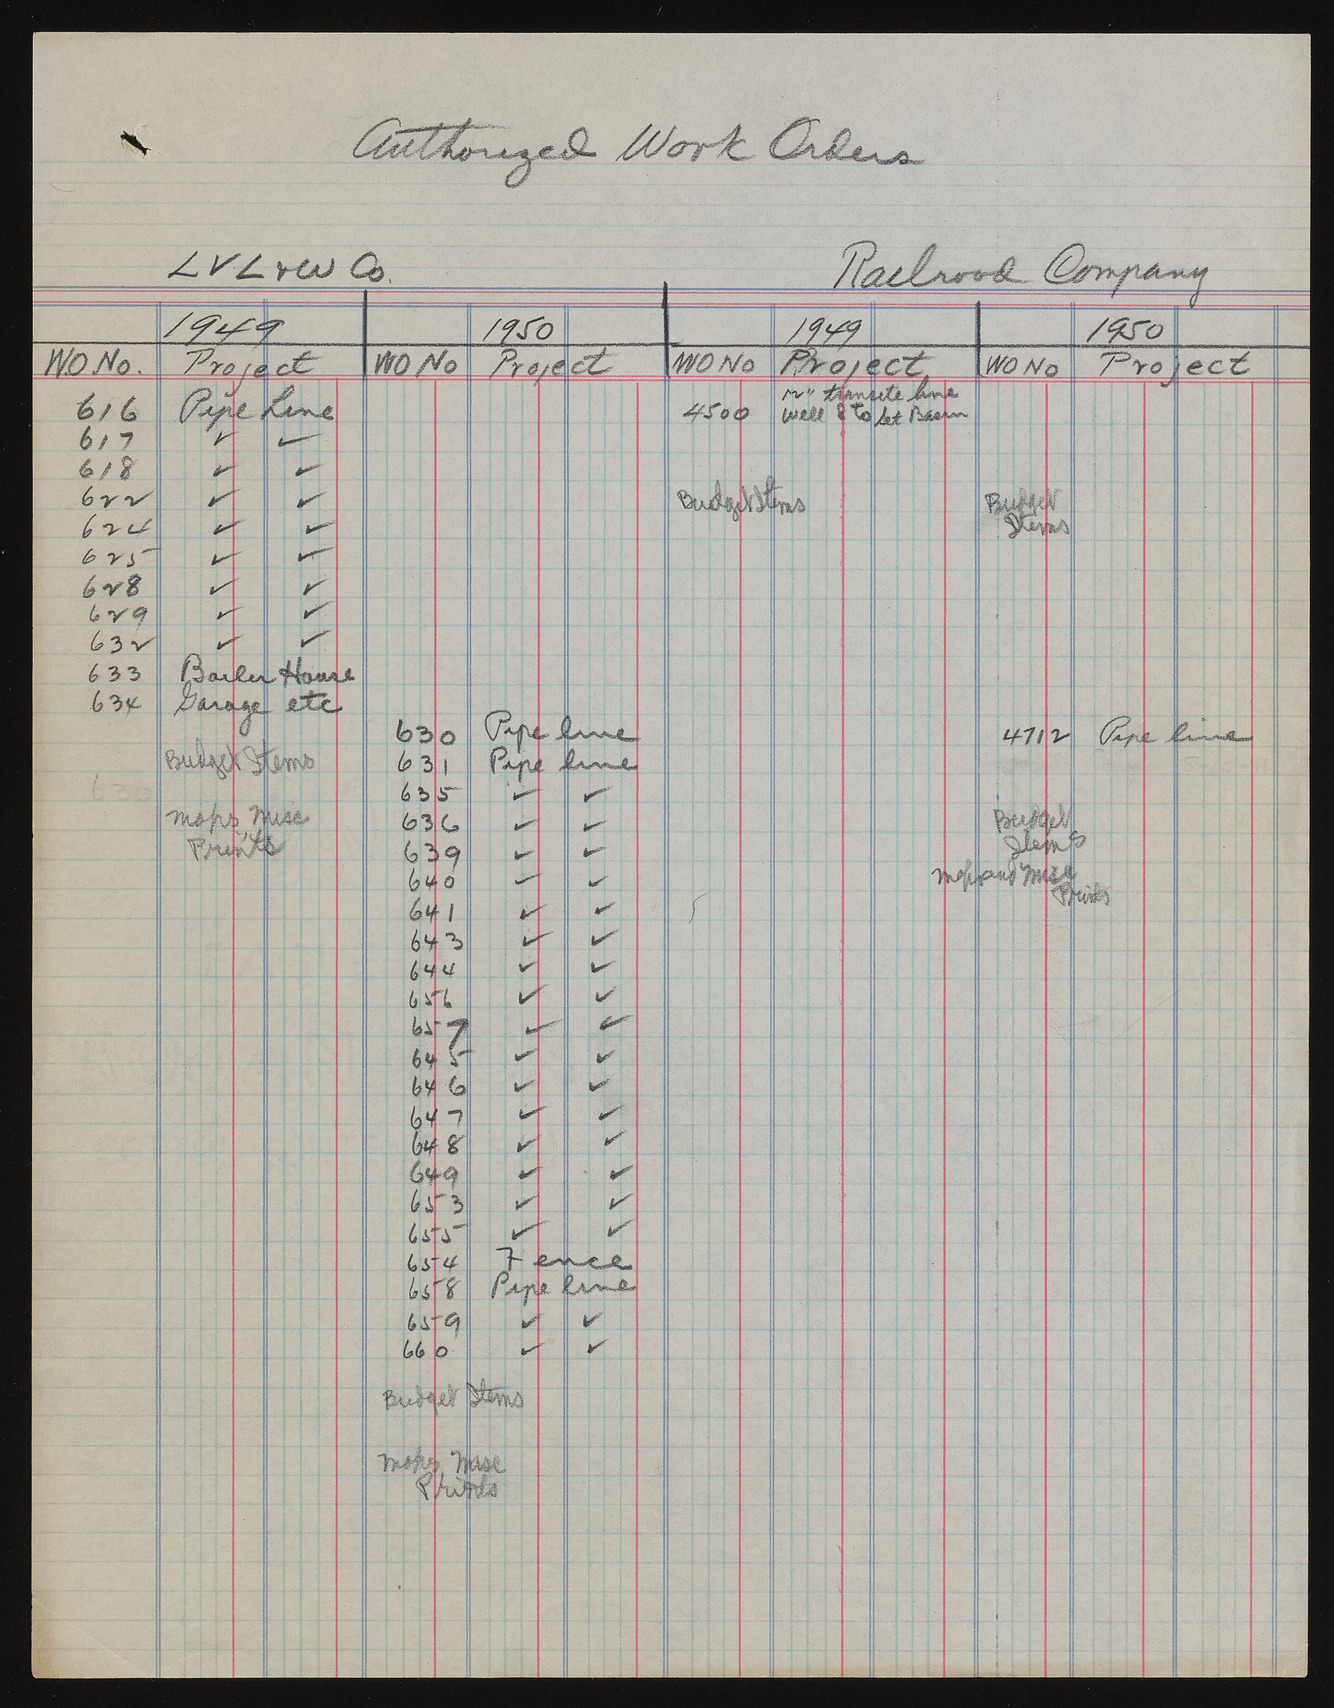 Authorized Work Orders
LVL&W Co. Railroad Company
1949 1950 1949 1950
WO.No. Project WO No Project WO No Project WO No Project
12" transite line
616 Pipe Line 4500 Well 8 to Set Basin
617 ✓ ✓
618 ✓ ✓
622 ✓ ✓ Budget Items Budget
624 ✓ ✓ Items
625 ✓ ✓
628 ✓ ✓
629 ✓ ✓
632 ✓ ✓
633 Boiler House
634 Garage etc
630 Pipe line 4712 Pipe line
Budget Items 631 Pipe line
635 ✓ ✓
Maps, Misc 636 ✓ ✓ Budget
Prints 639 ✓ ✓ Items
640 ✓ ✓ Maps and Misc
Prints
641 ✓ ✓
643 ✓ ✓
644 ✓ ✓
656 ✓ ✓
657 ✓ ✓
645 ✓ ✓
646 ✓ ✓
647 ✓ ✓
648 ✓ ✓
649 ✓ ✓
653 ✓ ✓
655 ✓ ✓
654 Fence
658 Pipe line
659 ✓ ✓
660 ✓ ✓
Budget Items
Maps Misc
Prints